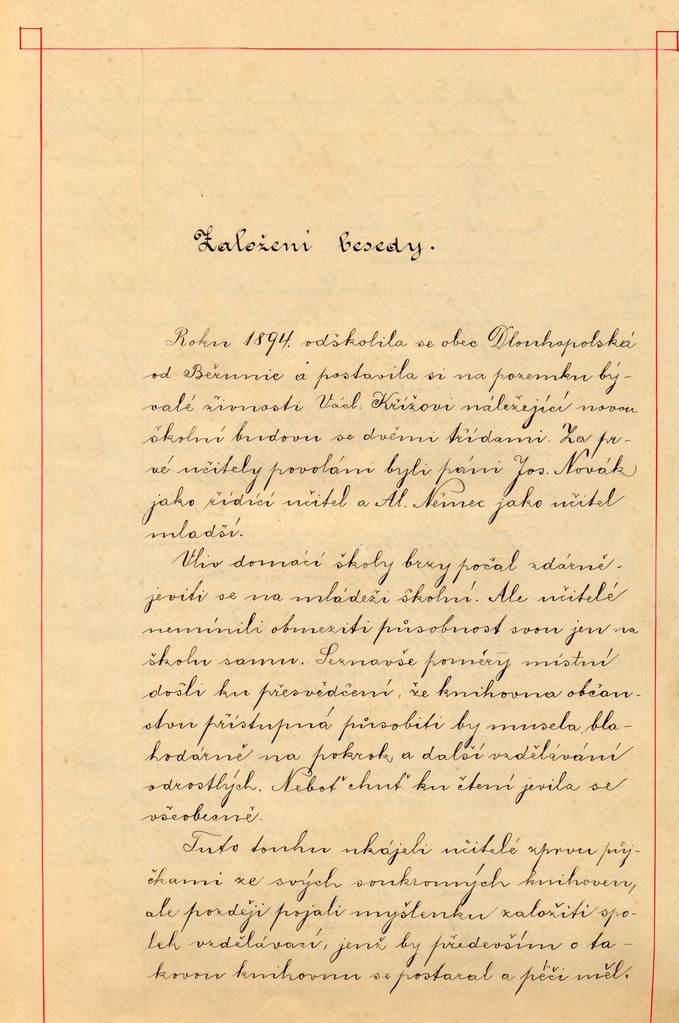 Založení besedy.
Roku 1894. odškolila se obec Dlouhopolská
od Běrunic a postavila si na pozemku bý-
valé živnosti Václ. Křížovi náležející novou
školní budovu se dvěmi třídami. Za pr-
vé učitely povoláni byli páni Jos. Novák
jako řídící učitel a Al. Němec jako učitel
mladší.
Vliv domácí školy brzy počal zdárně
jeviti se na mládeži školní. Ale učitelé
nemínili obmeziti působnost svou jen na
školu samu. Seznavše poměry místní
došli ku přesvědčení, že knihovna občan-
stvu přístupná působiti by musela bla-
hodárně na pokrok a další vzdělávání
odrostlých. Neboť chuť ku čtení jevila se
všeobecně.
Tuto touhu ukájeli učitelé zprvu půj-
čkami ze svých soukromých knihoven,
ale později pojali myšlenku založiti spo-
lek vzdělávací, jenž by především o ta-
kovou knihovnu se postaral a péči měl.